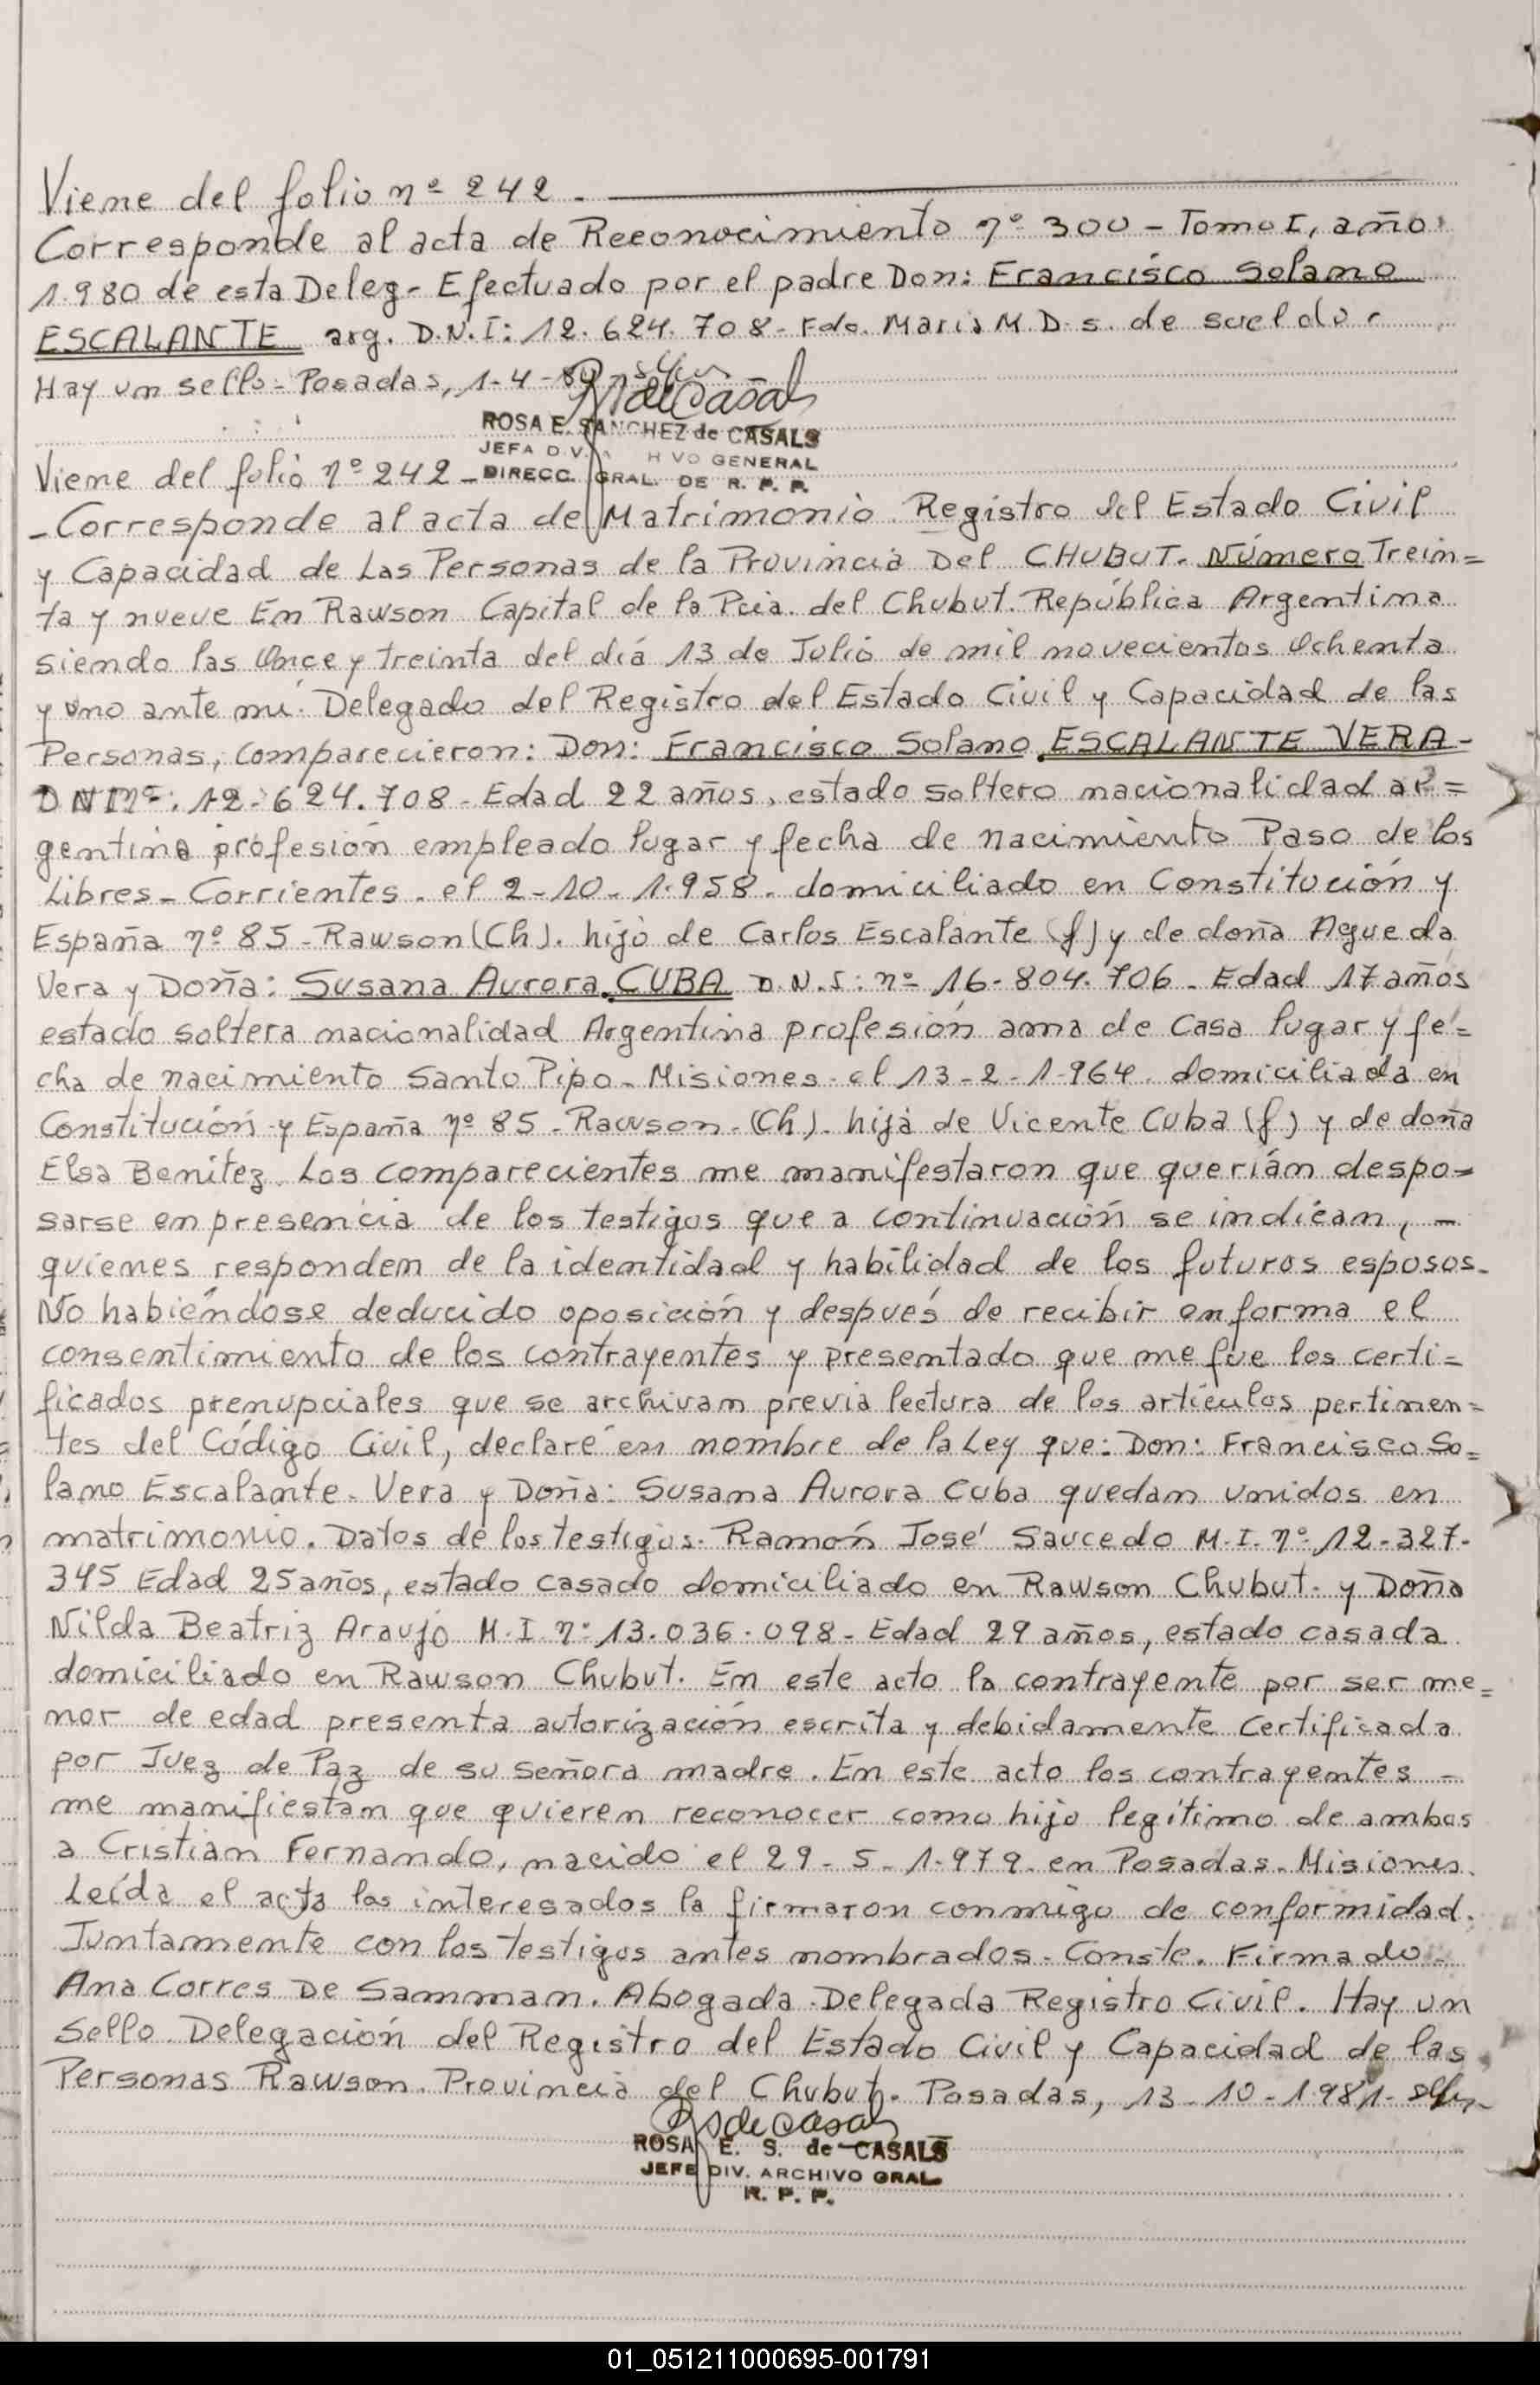 Viene del folio nº 242.
Corresponde al acta de Reconocimiento nº 300 - Tomo I, año
1.980 de esta Deleg- Efectuado por el padre Don: Francisco Solano
ESCALANTE arg. D.N.I: 12.624.708- Fdo. Maria M. D. s. de sueldo.
Hay un sello- Posadas, 1-4-80
ROSA E. SANCHEZ de CASALS
JEFA DIV. GENERAL
DIRECC. GRAL. DE R. P. P.
Viene del folio nº 242-
-Corresponde al acta de Matrimonio. Registro del Estado Civil
y Capacidad de Las Personas de la Provincia Del CHUBUT. Número Trein=
ta y nueve En Rawson Capital de la Pcia. del Chubut. República Argentina
siendo las Once y treinta del día 13 de Julio de mil novecientos Ochenta
y uno ante mí. Delegado del Registro del Estado Civil y Capacidad de las
Personas, comparecieron: Don: Francisco Solano ESCALANTE VERA-
DNI nº. 12.624.708- Edad 22 años, estado soltero nacionalidad ar=
gentina profesión empleado lugar y fecha de nacimiento Paso de los
Libres- Corrientes. el 2-10-1.958. domiciliado en Constitución y
España nº 85- Rawson (Ch). hijo de Carlos Escalante (f) y de doña Agueda
Vera y Doña: Susana Aurora CUBA D.N.I: nº 16.804.706. Edad 17 años
estado soltera nacionalidad Argentina profesión ama de Casa lugar y fe=
cha de nacimiento Santo Pipo- Misiones. el 13-2-1.964. domiciliada en
Constitución y España nº 85- Rawson- (Ch). hija de Vicente Cuba (f) y de doña
Elsa Benítez. Los comparecientes me manifestaron que querían despo=
sarse en presencia de los testigos que a continuación se indican, -
quienes responden de la identidad y habilidad de los futuros esposos-
No habiéndose deducido oposición y después de recibir en forma el
consentimiento de los contrayentes y presentado que me fue los certi=
ficados prenupciales que se archivan previa lectura de los artículos pertinen=
tes del Código Civil, declaré en nombre de la Ley que: Don: Francisco So=
lano Escalante. Vera y Doña: Susana Aurora Cuba quedan unidos en
matrimonio. Datos de los testigos. Ramón José Saucedo M.I. nº 12-327-
345 Edad 25 años, estado casado domiciliado en Rawson Chubut. y Doña
Nilda Beatriz Araujo M.I. nº 13.036.098- Edad 29 años, estado casada
domiciliado en Rawson Chubut. En este acto la contrayente por ser me=
nor de edad presenta autorización escrita y debidamente certificada
por Juez de Paz de su señora madre. En este acto los contrayentes -
me manifiestan que quieren reconocer como hijo legítimo de ambos
a Cristian Fernando, nacido el 29-5-1.979. en Posadas. Misiones.
Leída el acta los interesados la firmaron conmigo de conformidad.
Juntamente con los testigos antes nombrados- Conste. Firmado.
Ana Corres De Samman. Abogada Delegada Registro Civil. Hay un
sello. Delegación del Registro del Estado Civil y Capacidad de las
Personas Rawson. Provincia del Chubut. Posadas, 13-10-1.981-
ROSA E. S. de CASALS
JEFE DIV. ARCHIVO GRAL.
R. P. P.
01_051211000695-001791